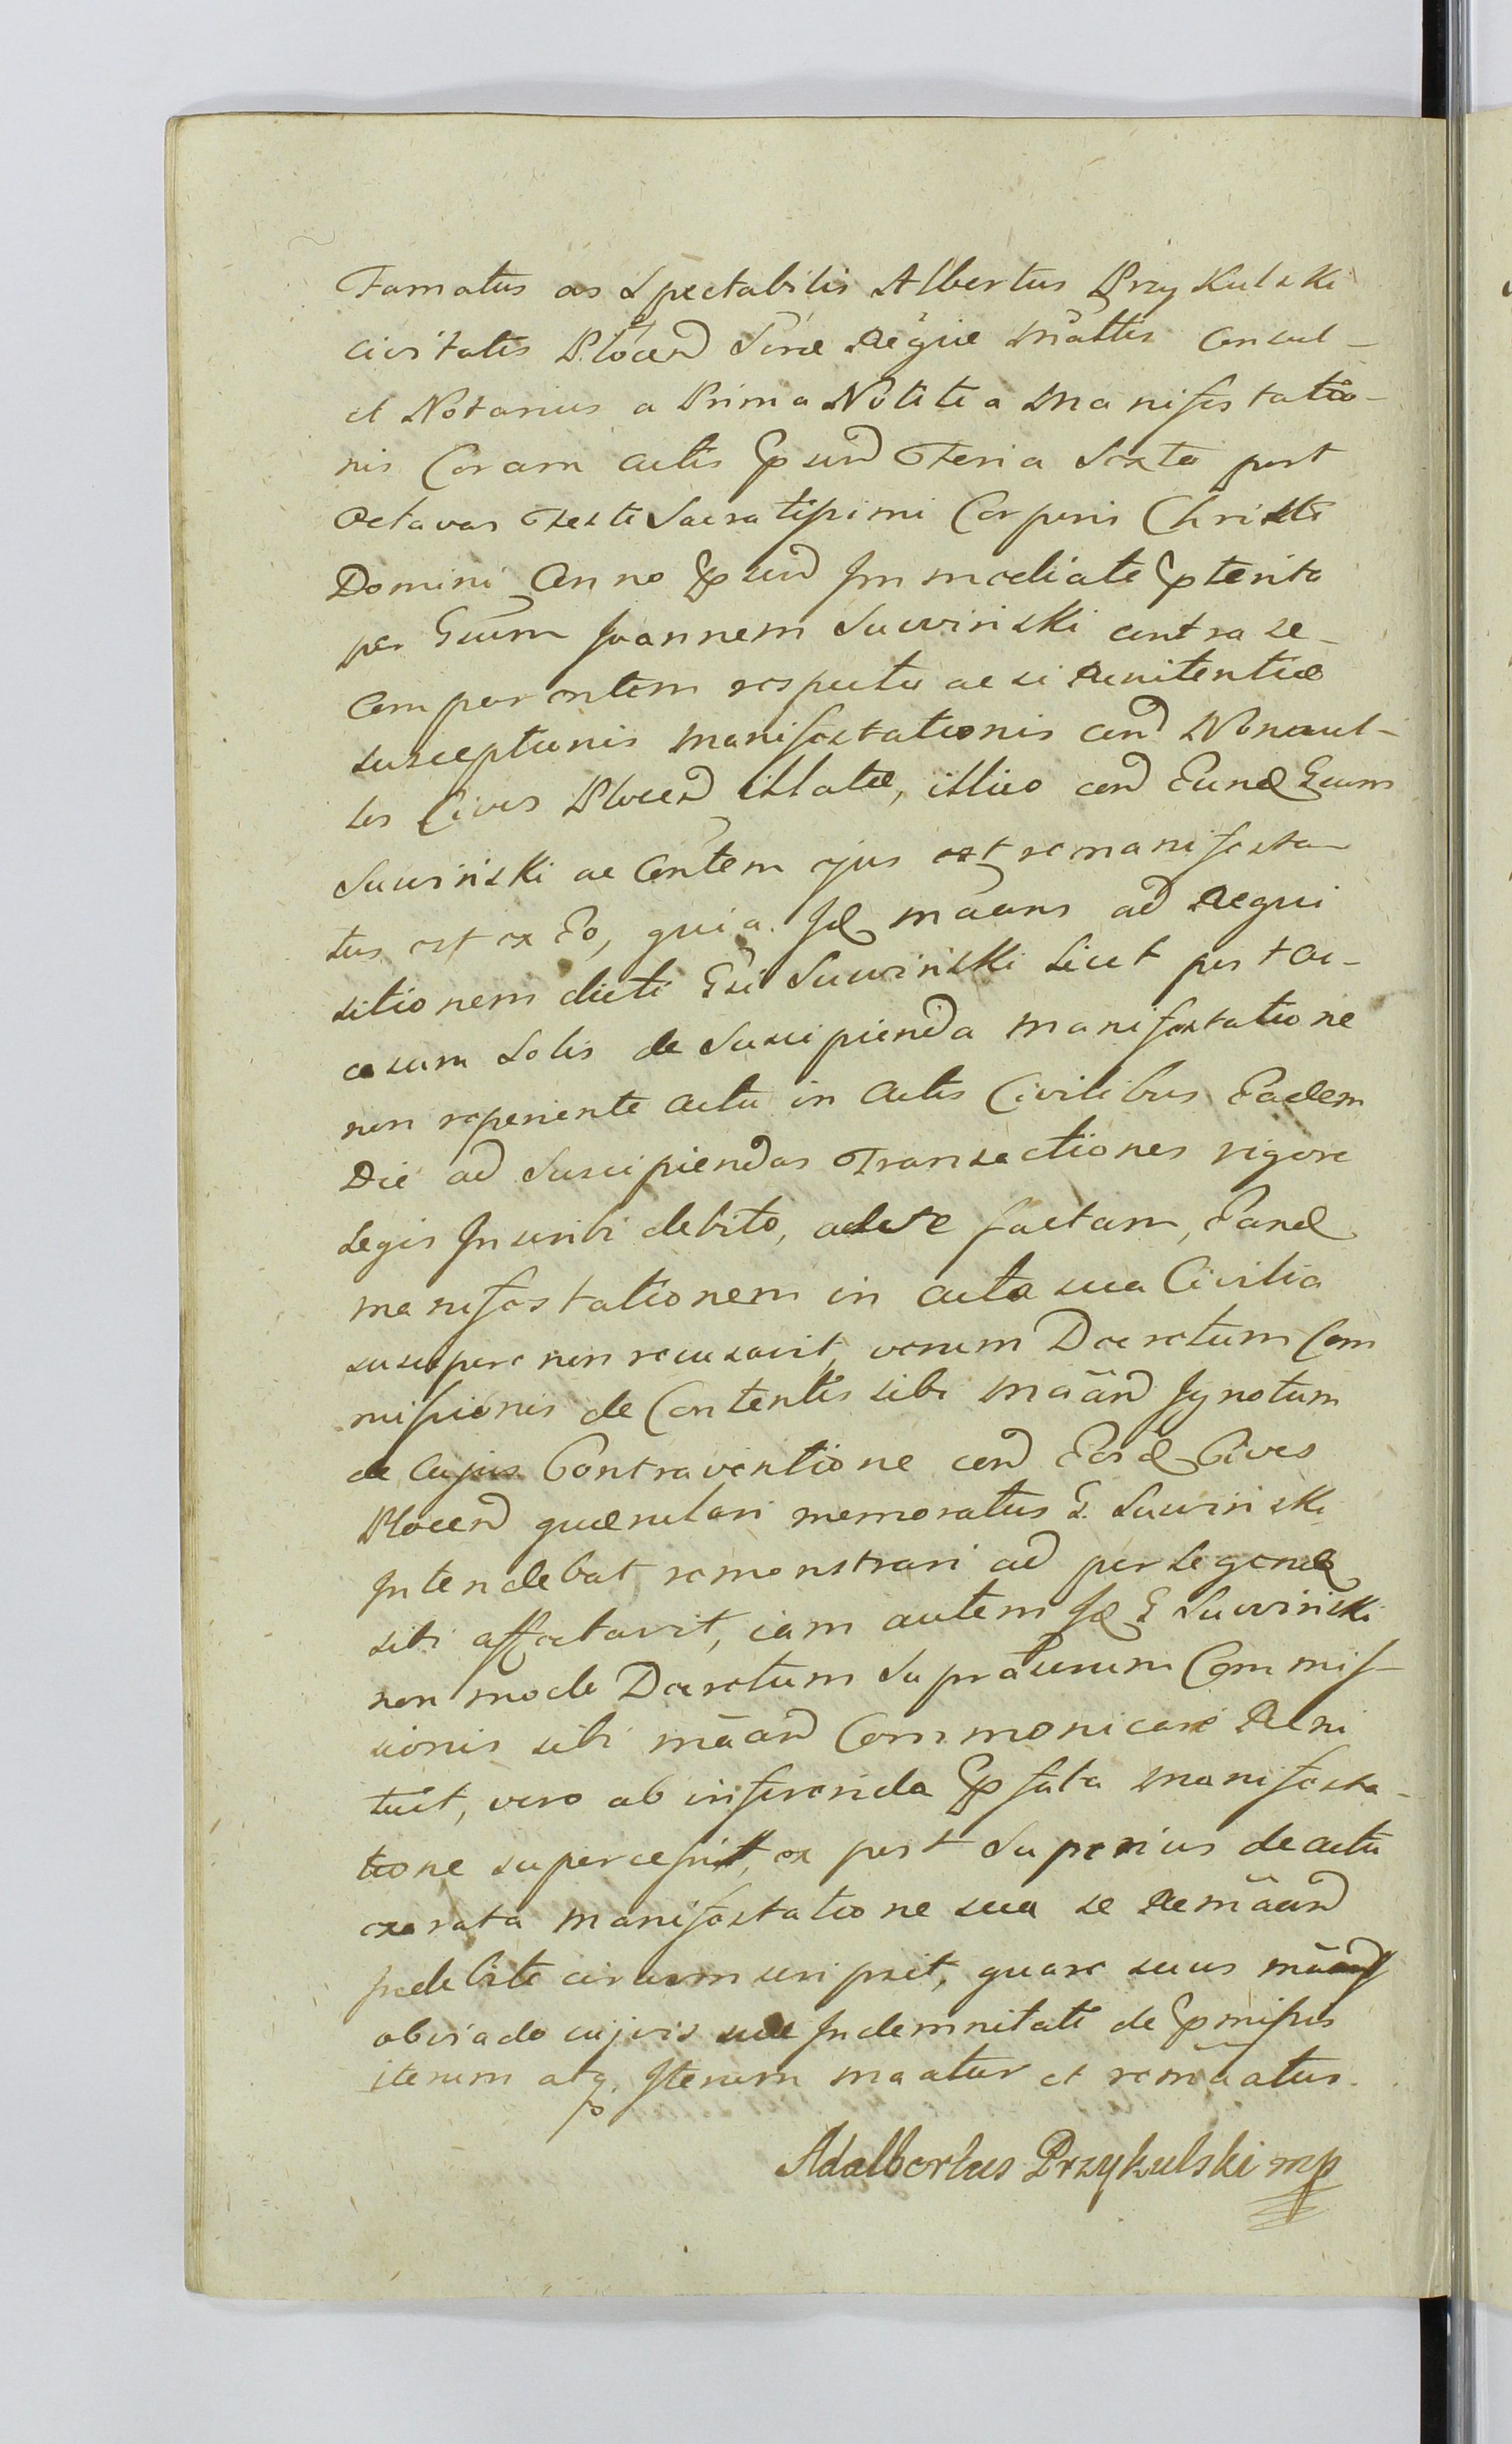 Famatus ac Spectabilis Albertus Przykulski
civitatis Plocen Sacræ Regiæ Mattis Consul
et Notarius a Prima Notitia Manifestatio-
nis Coram actis Psend Feria Sexta post
Octavas Festi Sacratissimi Corporis Christi
Domini Anno Psend Immediate Pterito
per Gsum Joannem Suwinski contra se
Comparentem respectu ac si Renitentiæ
susceptionis Manifestationis con Nonnul-
los Cives Plocen illatæ, illico con Eund Gsum
Suwinski ac Contem ejus est remanifesta
tus est ex Eo, quia Id maans ad Requi
sitionem dicti Gsi Suwinski licet post oc-
casum Solis de Suscipienda Manifestatione
non reperiente actu in Actis Civilibus Eadem
Die ad Suscipiendas Transactiones vigore
Legis Inscribi debito, ad se factam, Eand
manifestationem in acta sua Civilia
suscipere non recusavit, verum Decretum Com
missionis de Contentis sibi māan Ignotum
de Cujus Contraventione con Eosd Cives
Plocen quærulari memoratus G. Suwinski
Intendebat remonstrari ad perlegend
sibi affectavit, iam autem Id G Suwinski
non modo Decretum Supratum Commis-
sionis sibi māan Commonicare Reni
tuit, vero ab inferenda Pfata Manifesta-
tione supercessit, ex post Superius de actu
exarata Manifestatione sua se Remāan
Indebite circumscripsit, quare suus māan
obviado cujvis suæ Indemnitati de Pmissis
iterum atq Iterum maatur et remāatus.
Adalbertus Przykulski mp